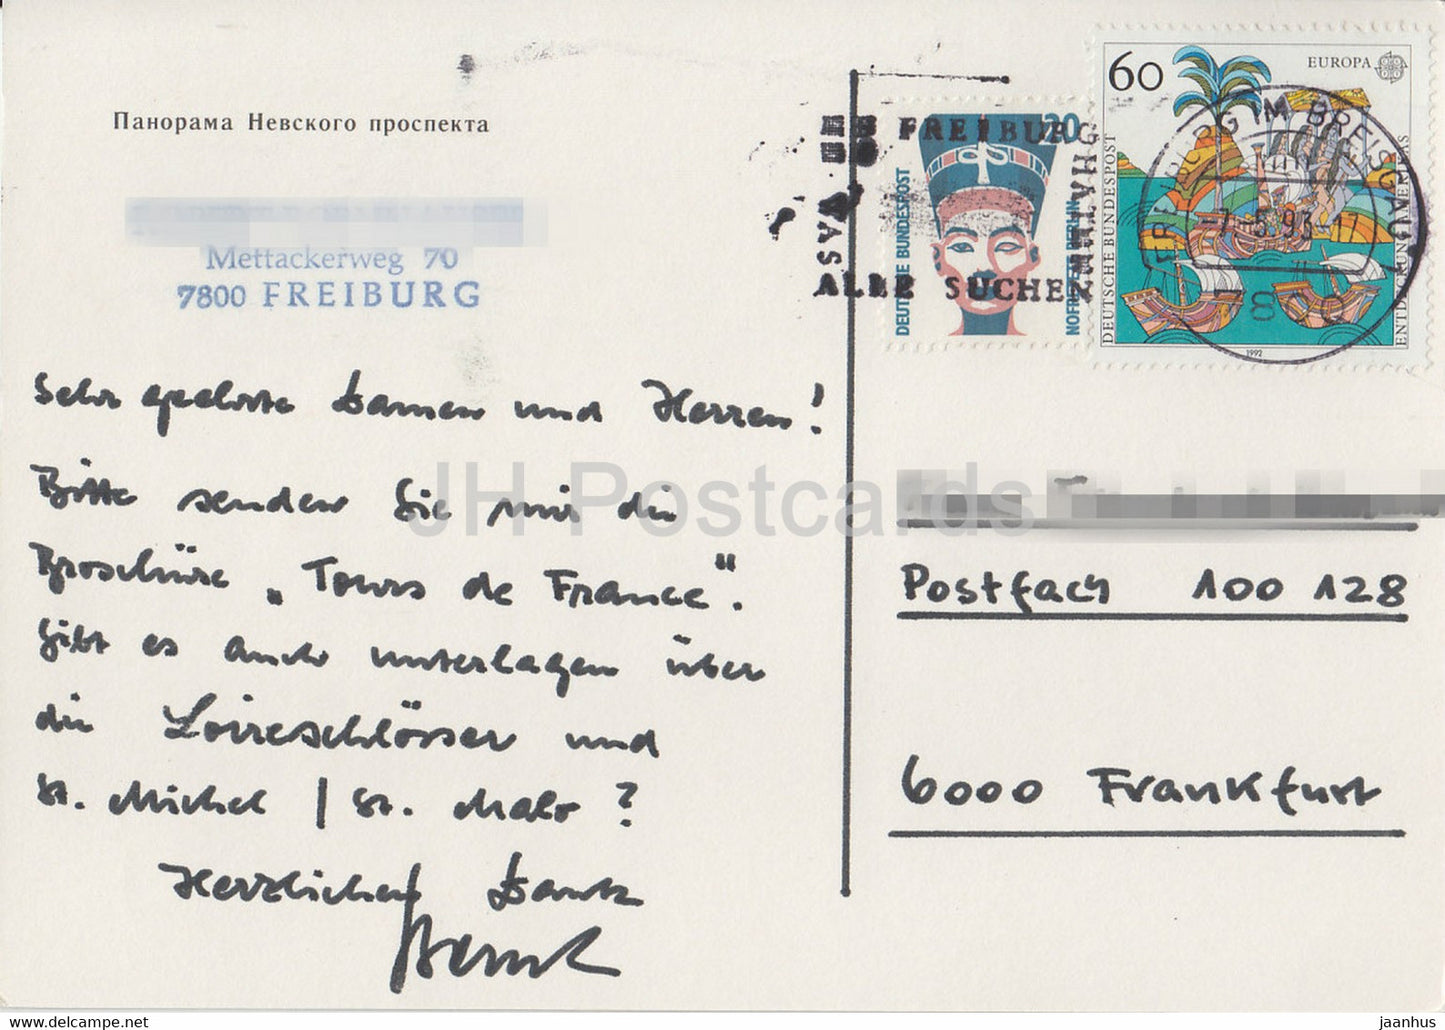 Панорама Невского проспекта
Mettackerweg 70
7800 FREIBURG
Sehr geehrte Damen und Herren!
Bitte senden Sie mir die
Broschüre „Tours de France".
Gibt es auch Unterlagen über
die Loireschlösser und
St. Michel / St. Malo?
Herzlichen Dank
FREIBURG
HAT
WAS
ALLE SUCHEN
20
DEUTSCHE BUNDESPOST
NOFRETETE BERLIN
60
EUROPA
DEUTSCHE BUNDESPOST
1992
FREIBURG IM BREISGAU
-7.-5.93-17
7800
Postfach 100 128
6000 Frankfurt
JH Postcards
https://www.ebay.com/usr/jaanhus
jaanhus